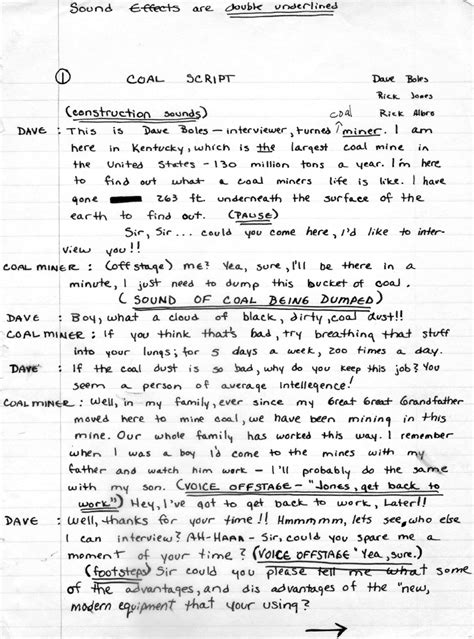 Sound Effects are double underlined
① COAL SCRIPT Dave Boles
Rick Jones
(construction sounds) coal Rick Albro
DAVE : This is Dave Boles — interviewer, turned ↑ miner. I am
here in Kentucky, which is the largest coal mine in
the United States - 130 million tons a year. I'm here
to find out what a coal miners life is like. I have
gone 263 ft. underneath the surface of the
earth to find out. (PAUSE)
Sir, Sir... could you come here, I'd like to inter-
view you!!
COAL MINER : (off stage) me? Yea, sure, I'll be there in a
minute, I just need to dump this bucket of coal.
(SOUND OF COAL BEING DUMPED)
DAVE : Boy, what a cloud of black, dirty, coal dust!!
COAL MINER : If you think that's bad, try breathing that stuff
into your lungs; for 5 days a week, 200 times a day.
DAVE : If the coal dust is so bad, why do you keep this job? You
seem a person of average intellegence!
COAL MINER : Well, in my family, ever since my Great Great Grandfather
moved here to mine coal, we have been mining in this
mine. Our whole family has worked this way. I remember
when I was a boy I'd come to the mines with my
father and watch him work - I'll probably do the same
with my son. (VOICE OFFSTAGE - "Jones, get back to
work") Hey, I've got to get back to work, Later!!
DAVE : Well, thanks for your time!! Hmmmmm, lets see, who else
I can interview? AH-HAAA - Sir, could you spare me a
moment of your time? (VOICE OFFSTAGE "Yea, sure.)
(footsteps) Sir could you please tell me what some
of the advantages, and dis advantages of the "new,
modern equipment that your using?
→